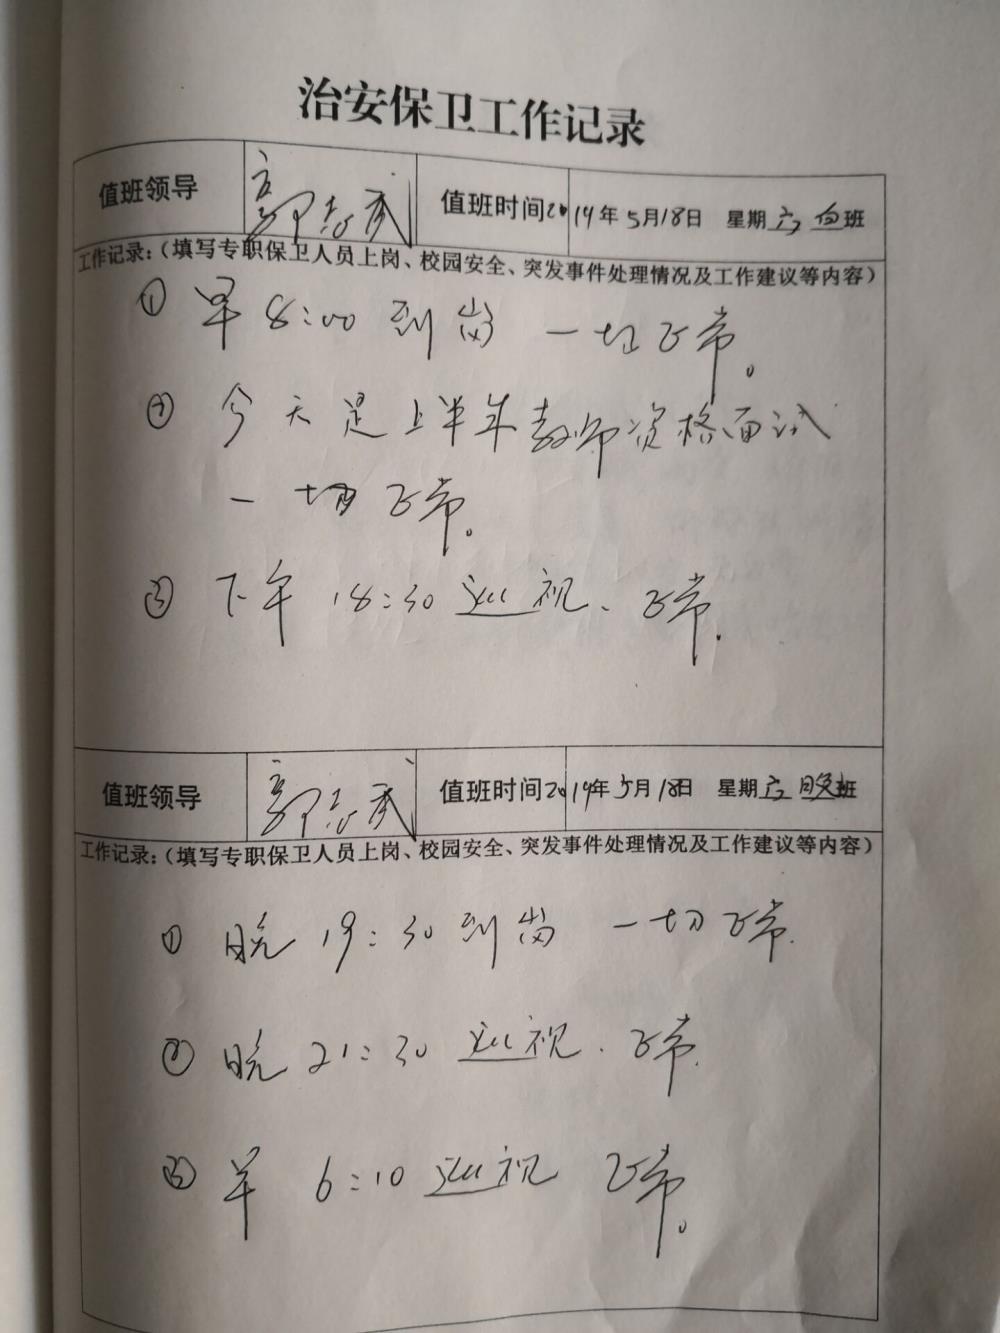 治安保卫工作记录
值班领导 郭志武 值班时间2019年5月18日 星期六 白班
工作记录:(填写专职保卫人员上岗、校园安全、突发事件处理情况及工作建议等内容)
① 早8:00到岗 一切正常。
② 今天是上半年教师资格面试
一切正常。
③ 下午18:30巡视、正常.
值班领导 郭志武 值班时间2019年5月18日 星期六 晚班
工作记录:(填写专职保卫人员上岗、校园安全、突发事件处理情况及工作建议等内容)
① 晚19:30到岗 一切正常.
② 晚21:30巡视、正常.
③ 早6:10巡视 正常。